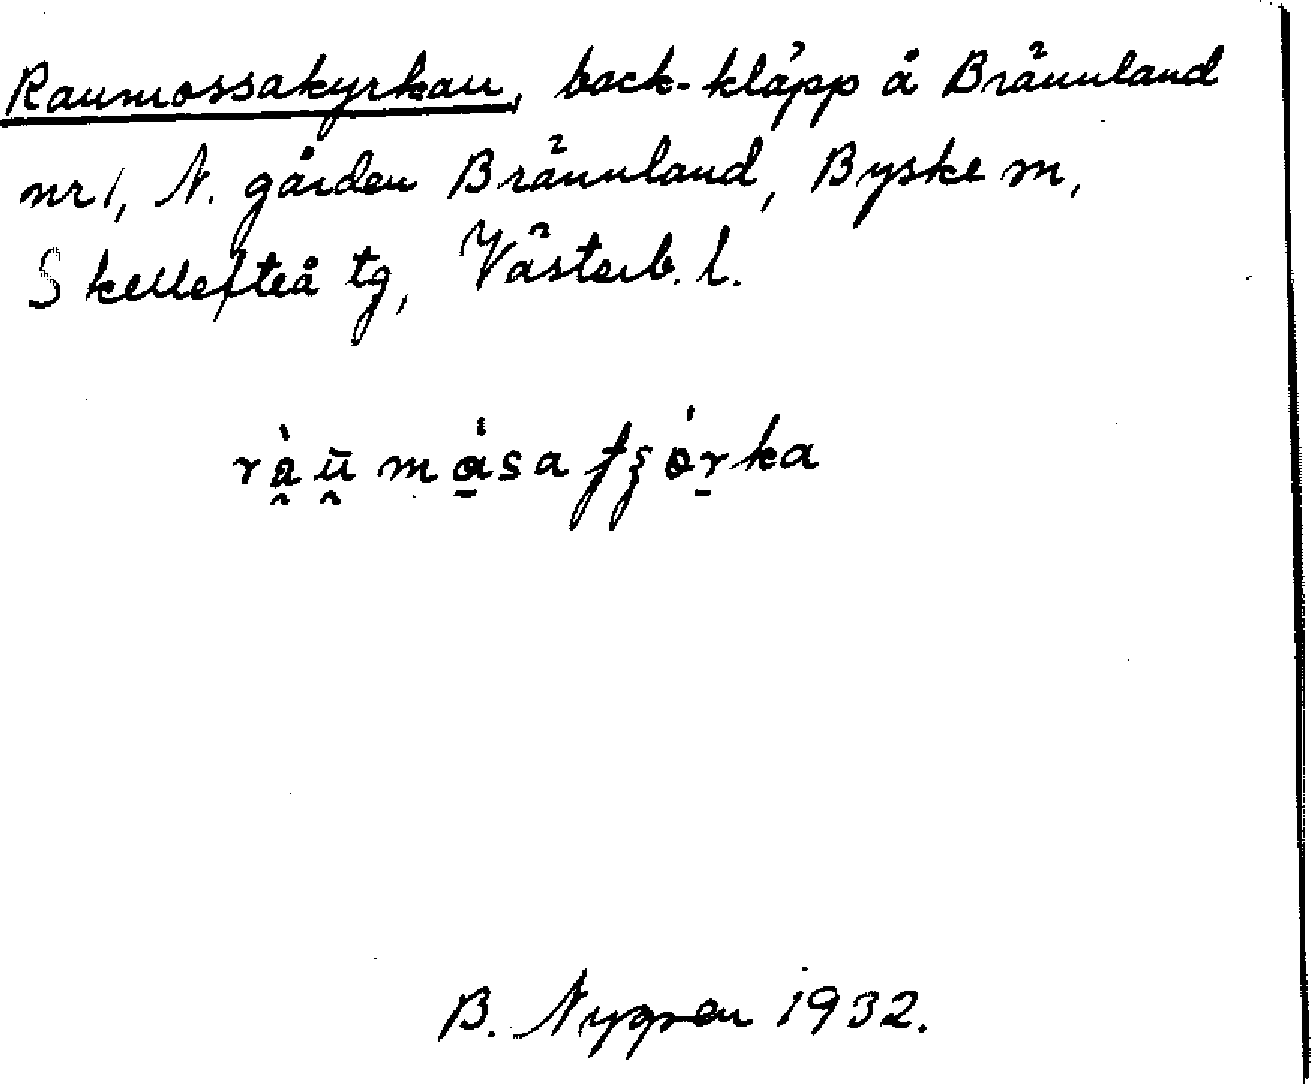 Raumossakyrkan, back-kläpp å Brännland
nr 1, N. gården Brännland, Byske m,
Skellefteå tg, Västerb. l.
B. Nygren 1932.